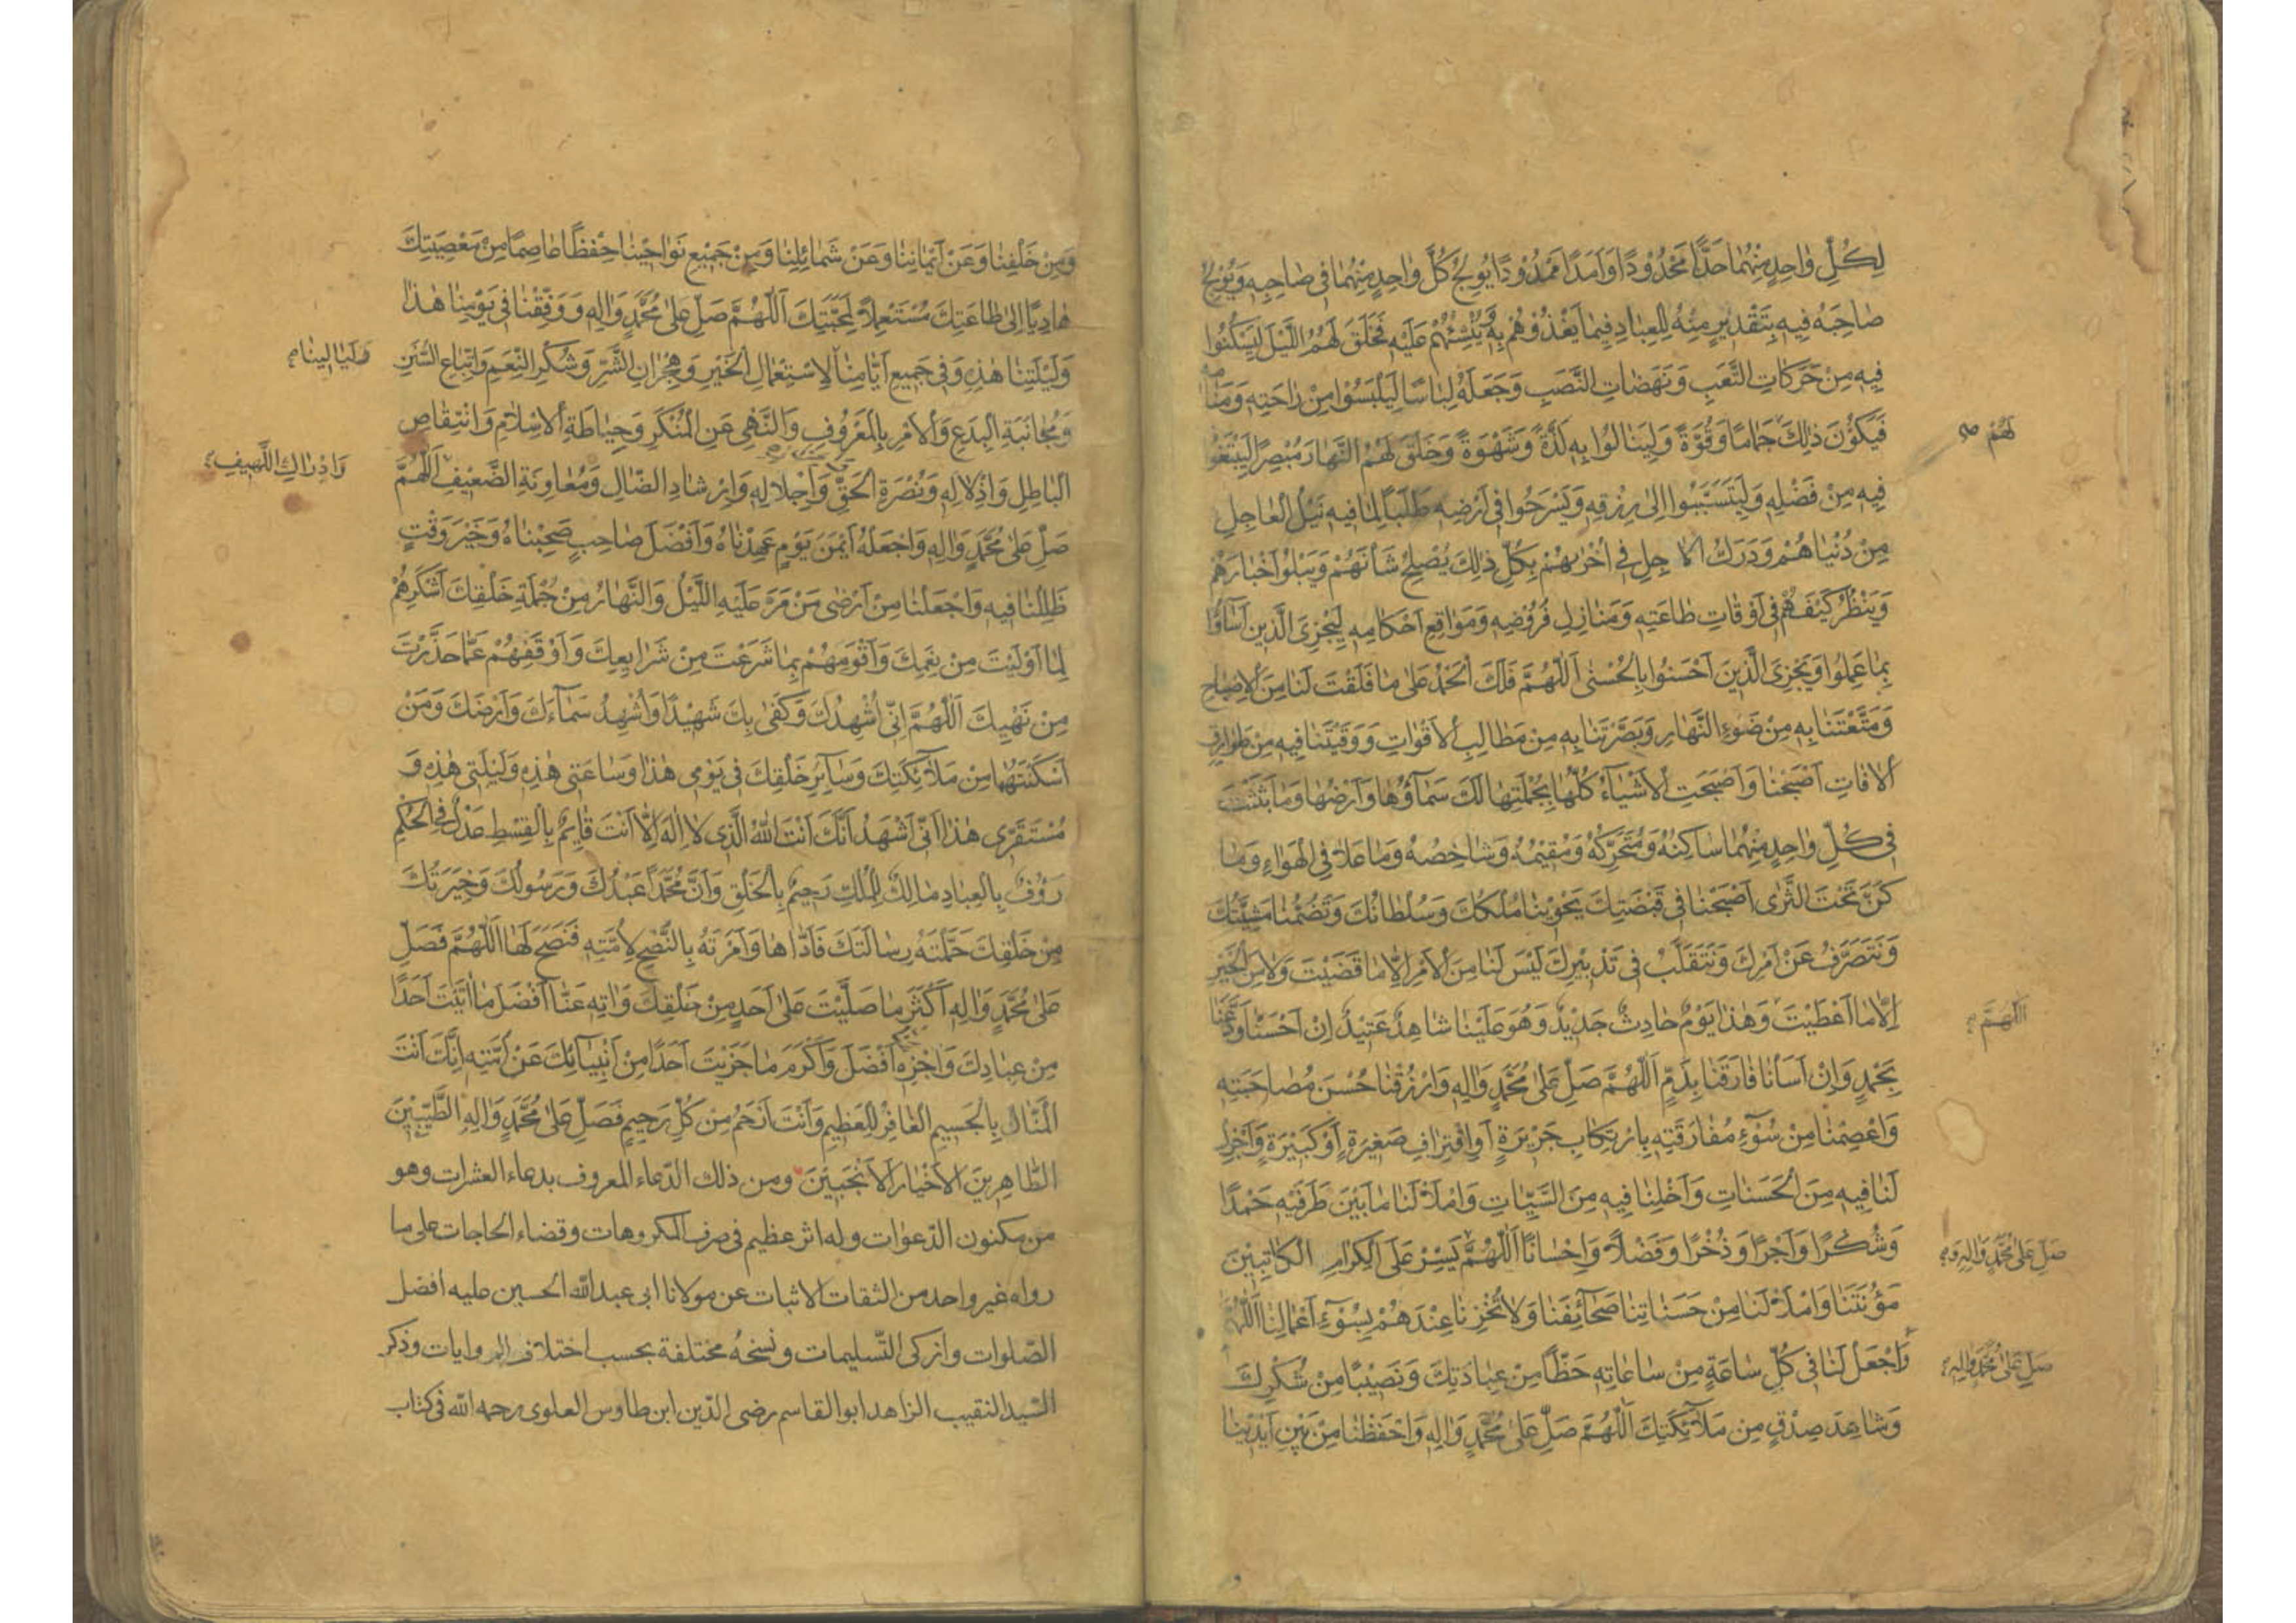 لِكُلِّ وٰاحِدٍ مِنْهُمٰا حَدًّا مَحْدُوْدًا وَاَمَدًا مَمْدُوْدًا يُوْلِجُ كُلَّ وٰاحِدٍ مِنْهُمٰا فى صٰاحِبِهِ وَيُوْلِجُ
صٰاحِبَهُ فيهِ بِتَقْديرٍ مِنْهُ لِلْعِبٰادِ فيمٰا يَغْذُوْهُمْ بِهِ وَيُنْشِئُهُمْ عَلَيْهِ فَخَلَقَ لَهُمُ اللَّيْلَ لِيَسْكُنُوا
فيهِ مِنْ حَرَكٰاتِ التَّعَبِ وَنَهَضٰاتِ النَّصَبِ وَجَعَلَهُ لِبٰاسًا لِيَلْبَسُوْا مِنْ رٰاحَتِهِ وَمَنٰامِهِ
فَيَكُوْنَ ذٰلِكَ جَمٰامًا وَقُوَّةً وَلِيَنٰالُوْا بِهِ لَذَّةً وَشَهْوَةً وَخَلَقَ لَهُمُ النَّهٰارَ مُبْصِرًا لِيَبْتَغُوْا
لَهُمْ
فيهِ مِنْ فَضْلِهِ وَلِيَتَسَبَّبُوا اِلىٰ رِزْقِهِ وَيَسْرَحُوا فى اَرْضِهِ طَلَبًا لِمٰا فيهِ نَيْلُ الْعٰاجِلِ
مِنْ دُنْيٰاهُمْ وَدَرَكُ الْاٰجِلِ فى اُخْرٰىهُمْ بِكُلِّ ذٰلِكَ يُصْلِحُ شَأْنَهُمْ وَيَبْلُوْ اَخْبٰارَهُمْ
وَيَنْظُرُ كَيْفَ هُمْ فى اَوْقٰاتِ طٰاعَتِهِ وَمَنٰازِلِ فُرُوْضِهِ وَمَوٰاقِعِ اَحْكٰامِهِ لِيَجْزِىَ الَّذينَ اَسٰآؤُا
بِمٰا عَمِلُوا وَيَجْزِىَ الَّذينَ اَحْسَنُوا بِالْحُسْنٰى اَللّٰهُمَّ فَلَكَ الْحَمْدُ عَلىٰ مٰا فَلَقْتَ لَنٰا مِنَ الْاِصْبٰاحِ
وَمَتَّعْتَنٰا بِهِ مِنْ ضَوْءِ النَّهٰارِ وَبَصَّرْتَنٰا بِهِ مِنْ مَطٰالِبِ الْاَقْوٰاتِ وَوَقَيْتَنٰا فيهِ مِنْ طَوٰارِقِ
الْاٰفٰاتِ اَصْبَحْنٰا وَاَصْبَحَتِ الْاَشْيٰآءُ كُلُّهٰا بِجُمْلَتِهٰا لَكَ سَمٰآؤُهٰا وَاَرْضُهٰا وَمٰا بَثَثْتَ
فى كُلِّ وٰاحِدٍ مِنْهُمٰا سٰاكِنُهُ وَمُتَحَرِّكُهُ وَمُقيْمُهُ وَشٰاخِصُهُ وَمٰا عَلٰا فِى الْهَوٰاءِ وَمٰا
كَنَّ تَحْتَ الثَّرٰى اَصْبَحْنٰا فى قَبْضَتِكَ يَحْوِيْنٰا مُلْكُكَ وَسُلْطٰانُكَ وَتَضُمُّنٰا مَشِيَّتُكَ
وَنَتَصَرَّفُ عَنْ اَمْرِكَ وَنَتَقَلَّبُ فى تَدْبيْرِكَ لَيْسَ لَنٰا مِنَ الْاَمْرِ اِلّٰا مٰا قَضَيْتَ وَلٰا مِنَ الْخَيْرِ
اِلّٰا مٰا اَعْطَيْتَ وَهٰذٰا يَوْمٌ حٰادِثٌ جَديْدٌ وَهُوَ عَلَيْنٰا شٰاهِدٌ عَتيْدٌ اِنْ اَحْسَنّٰا وَدَّعَنٰا
اَللّٰهُمَّ
بِحَمْدٍ وَاِنْ اَسَأْنٰا فٰارَقَنٰا بِذَمٍّ اَللّٰهُمَّ صَلِّ عَلىٰ مُحَمَّدٍ وَاٰلِهِ وَارْزُقْنٰا حُسْنَ مُصٰاحَبَتِهِ
وَاعْصِمْنٰا مِنْ سُوْٓءِ مُفٰارَقَتِهِ بِارْتِكٰابِ جَرِيْرَةٍ اَوِ اقْتِرٰافِ صَغيرَةٍ اَوْ كَبيْرَةٍ وَاَجْزِلْ
لَنٰا فيهِ مِنَ الْحَسَنٰاتِ وَاَخْلِنٰا فيهِ مِنَ السَّيِّئٰاتِ وَامْلَأْ لَنٰا مٰا بَيْنَ طَرَفَيْهِ حَمْدًا
وَشُكْرًا وَاَجْرًا وَذُخْرًا وَفَضْلًا وَاِحْسٰانًا اَللّٰهُمَّ يَسِّرْ عَلَى الْكِرٰامِ الْكٰاتِبيْنَ
صَلِّ عَلىٰ مُحَمَّدٍ وَاٰلِهِ وَ
مَؤُنَتَنٰا وَامْلَأْ لَنٰا مِنْ حَسَنٰاتِنٰا صَحٰآئِفَنٰا وَلٰا تُخْزِنٰا عِنْدَهُمْ بِسُوْٓءِ اَعْمٰالِنٰا اَللّٰهُمَّ
وَاجْعَلْ لَنٰا فى كُلِّ سٰاعَةٍ مِنْ سٰاعٰاتِهِ حَظًّا مِنْ عِبٰادَتِكَ وَنَصيْبًا مِنْ شُكْرِكَ
صَلِّ عَلىٰ مُحَمَّدٍ وَاٰلِهِ
وَشٰاهِدَ صِدْقٍ مِنْ مَلٰآئِكَتِكَ اَللّٰهُمَّ صَلِّ عَلىٰ مُحَمَّدٍ وَاٰلِهِ وَاحْفَظْنٰا مِنْ بَيْنِ اَيْديْنٰا
وَمِنْ خَلْفِنٰا وَعَنْ اَيْمٰانِنٰا وَعَنْ شَمٰائِلِنٰا وَمِنْ جَميْعِ نَوٰاحيْنٰا حِفْظًا عٰاصِمًا مِنْ مَعْصِيَتِكَ
هٰادِيًا اِلىٰ طٰاعَتِكَ مُسْتَعْمِلًا لِمَحَبَّتِكَ اَللّٰهُمَّ صَلِّ عَلىٰ مُحَمَّدٍ وَاٰلِهِ وَوَفِّقْنٰا فى يَوْمِنٰا هٰذٰا
وَلَيْلَتِنٰا هٰذِهِ وَفى جَميعِ اَيّٰامِنٰا لِاسْتِعْمٰالِ الْخَيْرِ وَهِجْرٰانِ الشَّرِّ وَشُكْرِ النِّعَمِ وَاتِّبٰاعِ السُّنَنِ
وَلَيٰالينٰا
وَمُجٰانَبَةِ الْبِدَعِ وَالْاَمْرِ بِالْمَعْرُوْفِ وَالنَّهْىِ عَنِ الْمُنْكَرِ وَحِيٰاطَةِ الْاِسْلٰامِ وَانْتِقٰاصِ
الْبٰاطِلِ وَاِذْلٰالِهِ وَنُصْرَةِ الْحَقِّ وَاِجْلٰالِهِ وَاِرْشٰادِ الضّٰالِّ وَمُعٰاوَنَةِ الضَّعيْفِ اَللّٰهُمَّ
وَاِدْرٰاكِ اللَّهيفِ
صَلِّ عَلىٰ مُحَمَّدٍ وَاٰلِهِ وَاجْعَلْهُ اَيْمَنَ يَوْمٍ عَهِدْنٰاهُ وَاَفْضَلَ صٰاحِبٍ صَحِبْنٰاهُ وَخَيْرَ وَقْتٍ
ظَلِلْنٰا فيهِ وَاجْعَلْنٰا مِنْ اَرْضٰى مَنْ مَرَّ عَلَيْهِ اللَّيْلُ وَالنَّهٰارُ مِنْ جُمْلَةِ خَلْقِكَ اَشْكَرَهُمْ
لِمٰا اَوْلَيْتَ مِنْ نِعَمِكَ وَاَقْوَمَهُمْ بِمٰا شَرَعْتَ مِنْ شَرٰايِعِكَ وَاَوْقَفَهُمْ عَمّٰا حَذَّرْتَ
مِنْ نَهْيِكَ اَللّٰهُمَّ اِنّى اُشْهِدُكَ وَكَفىٰ بِكَ شَهيْدًا وَاُشْهِدُ سَمٰآءَكَ وَاَرْضَكَ وَمَنْ
اَسْكَنْتَهُمٰا مِنْ مَلٰآئِكَتِكَ وَسٰآئِرِ خَلْقِكَ فى يَوْمى هٰذٰا وَسٰاعَتى هٰذِهِ وَلَيْلَتى هٰذِهِ وَ
مُسْتَقَرّى هٰذٰا اَنّى اَشْهَدُ اَنَّكَ اَنْتَ اللّٰهُ الَّذى لٰا اِلٰهَ اِلّٰا اَنْتَ قٰائِمٌ بِالْقِسْطِ عَدْلٌ فِى الْحُكْمِ
رَؤُفٌ بِالْعِبٰادِ مٰالِكُ الْمُلْكِ رَحيمٌ بِالْخَلْقِ وَاَنَّ مُحَمَّدًا عَبْدُكَ وَرَسُوْلُكَ وَخِيَرَتُكَ
مِنْ خَلْقِكَ حَمَّلْتَهُ رِسٰالَتَكَ فَاَدّٰاهٰا وَاَمَرْتَهُ بِالنُّصْحِ لِاُمَّتِهِ فَنَصَحَ لَهٰا اَللّٰهُمَّ فَصَلِّ
عَلىٰ مُحَمَّدٍ وَاٰلِهِ اَكْثَرَ مٰا صَلَّيْتَ عَلىٰ اَحَدٍ مِنْ خَلْقِكَ وَاٰتِهِ عَنّٰا اَفْضَلَ مٰا اٰتَيْتَ اَحَدًا
مِنْ عِبٰادِكَ وَاجْزِهِ اَفْضَلَ وَاَكْرَمَ مٰا جَزَيْتَ اَحَدًا مِنْ اَنْبِيٰآئِكَ عَنْ اُمَّتِهِ اِنَّكَ اَنْتَ
الْمَنّٰانُ بِالْجَسيمِ الْغٰافِرُ لِلْعَظيمِ وَاَنْتَ اَرْحَمُ مِنْ كُلِّ رَحيمٍ فَصَلِّ عَلىٰ مُحَمَّدٍ وَاٰلِهِ الطَّيِّبيْنَ
الطّٰاهِرينَ الْاَخْيٰارِ الْاَنْجَبيْنَ ومن ذلك الدّعاء المعروف بدعاء العشرات وهو
من مكنون الدّعوات وله اثر عظيم فى صرف المكروهات وقضاء الحاجات على ما
رواه غير واحد من الثقات الاثبات عن مولانا ابى عبد اللّه الحسين عليه افضل
الصّلوات وازكى التّسليمات ونسخهُ مختلفة بحسب اختلاف الروايات وذكر
السّيد النقيب الزاهد ابو القاسم رضى الدّين ابن طاوس العلوى رحمه اللّه فى كتاب